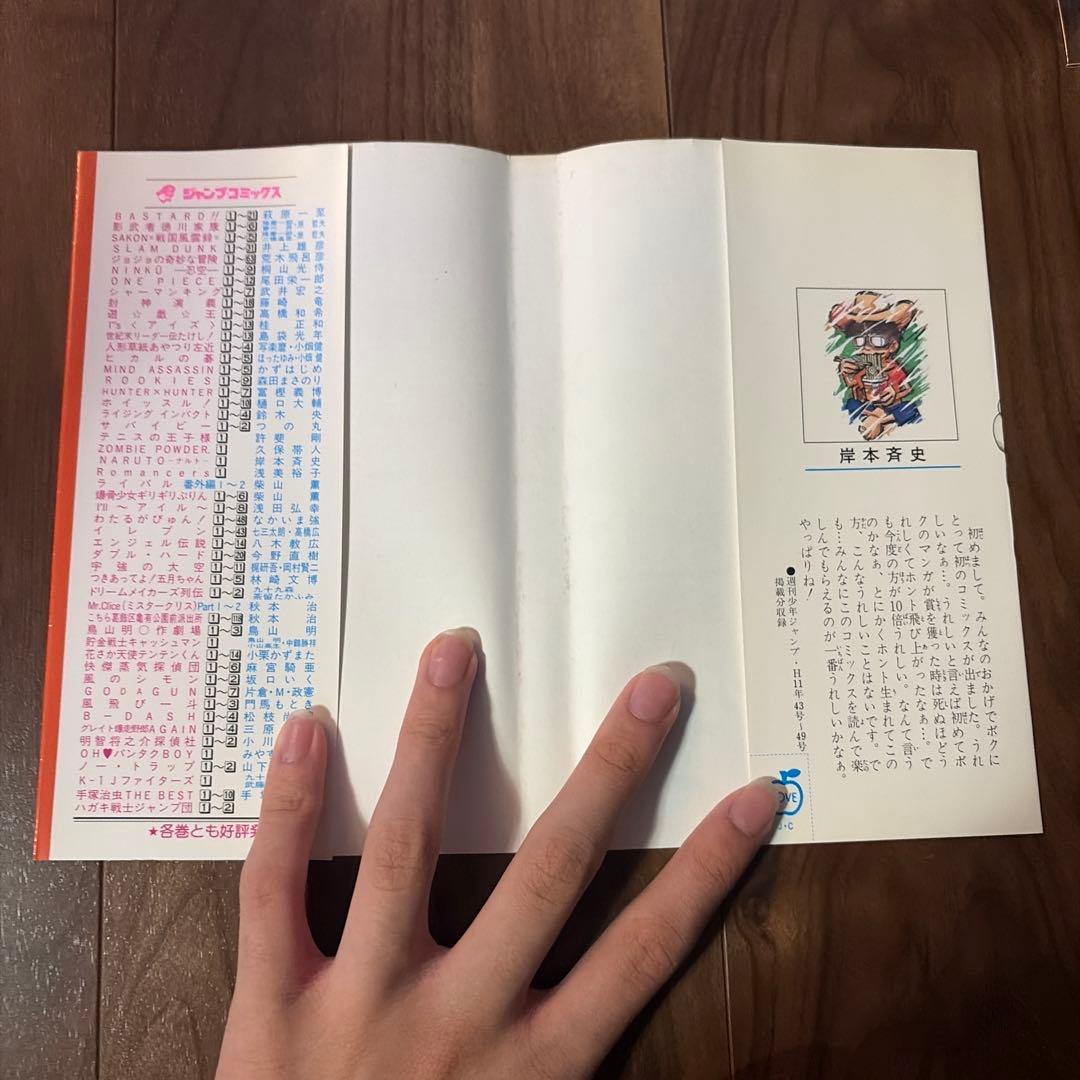 ジャンプコミックス
BASTARD!! 1〜21 萩原一至
影武者徳川家康 1〜6
SAKON−戦国風雲録−
SLAM DUNK 1〜31 井上雄彦
ジョジョの奇妙な冒険 荒木飛呂彦
NINKŪ—忍空— 1〜9 桐山光侍
ONE PIECE 1〜12 尾田栄一郎
シャーマンキング 1〜7 武井宏之
封神演義 藤崎竜
遊☆戯☆王 1〜17 高橋和希
I"s〈アイズ〉 1〜13 桂正和
世紀末リーダー伝たけし! 1〜13 島袋光年
人形草紙あやつり左近 1〜4 写楽麿・小畑健
ヒカルの碁 1〜5 ほったゆみ・小畑健
MIND ASSASSIN 1〜5 かずはじめ
ROOKIES 1〜9 森田まさのり
HUNTER×HUNTER 1〜7 冨樫義博
ホイッスル! 1〜10 樋口大輔
ライジング インパクト 1〜4 鈴木央
サバイビー 1〜2 つの丸
テニスの王子様 1 許斐剛
ZOMBIE POWDER. 1 久保帯人
NARUTO−ナルト− 1 岸本斉史
Romancers 1 浅美裕子
ライバル 番外編1〜2 柴山薫
爆骨少女ギリギリぷりん 1〜6 柴山薫
I'll〜アイル〜 1〜8 浅田弘幸
わたるがぴゅん! 1〜48 なかいま強
イレブン 1〜43 七三太朗・高橋広
エンジェル伝説 1〜14 八木教広
ダブル・ハード 1〜20 今野直樹
宇強の大空 1〜11 梶研吾・岡村賢二
つきあってよ!五月ちゃん 1〜5 林崎文博
ドリームメイカーズ列伝 1〜2 九十九森
Mr.Clice(ミスタークリス)Part 1〜2 秋本治
こちら葛飾区亀有公園前派出所 秋本治
鳥山明○作劇場 1〜3 鳥山明
貯金戦士キャッシュマン 1 鳥山明・中鶴勝祥
花さか天使テンテンくん 1〜14 小栗かずまた
快傑蒸気探偵団 1〜6 麻宮騎亜
風のシモン 1〜2 坂口いく
GODAGUN 1〜7 片倉・M・政憲
風飛び一斗 1〜3 門馬もとき
B−DASH 1〜4 松枝尚
グレイト爆走野郎AGAIN 1〜4 三原
明智将之介探偵社 1〜2 小川
OH♥バンタクBOY 1 みやす
ノー・トラップ 1〜2 山下
K−1Jファイターズ 1 九十
手塚治虫THE BEST 1〜10 手
ハガキ戦士ジャンプ団 1〜2
★各巻とも好評発
岸本斉史
初めまして。みんなのおかげでボクに
とって初のコミックスが出ました。うれ
しいなぁ…。うれしいと言えば初めてボ
クのマンガが賞を獲った時は死ぬほどう
れしくてホント飛び上がったなぁ…。で
も今度の方が10倍うれしい。なんて言う
のかなぁ、とにかくホント生まれてこの
方、こんなうれしいことはないです。で
も…みんなにこのコミックスを読んで楽
しんでもらえるのが一番うれしいかなぁ。
やっぱりね!
●週刊少年ジャンプ・H11年43号〜49号
掲載分収録
J・C